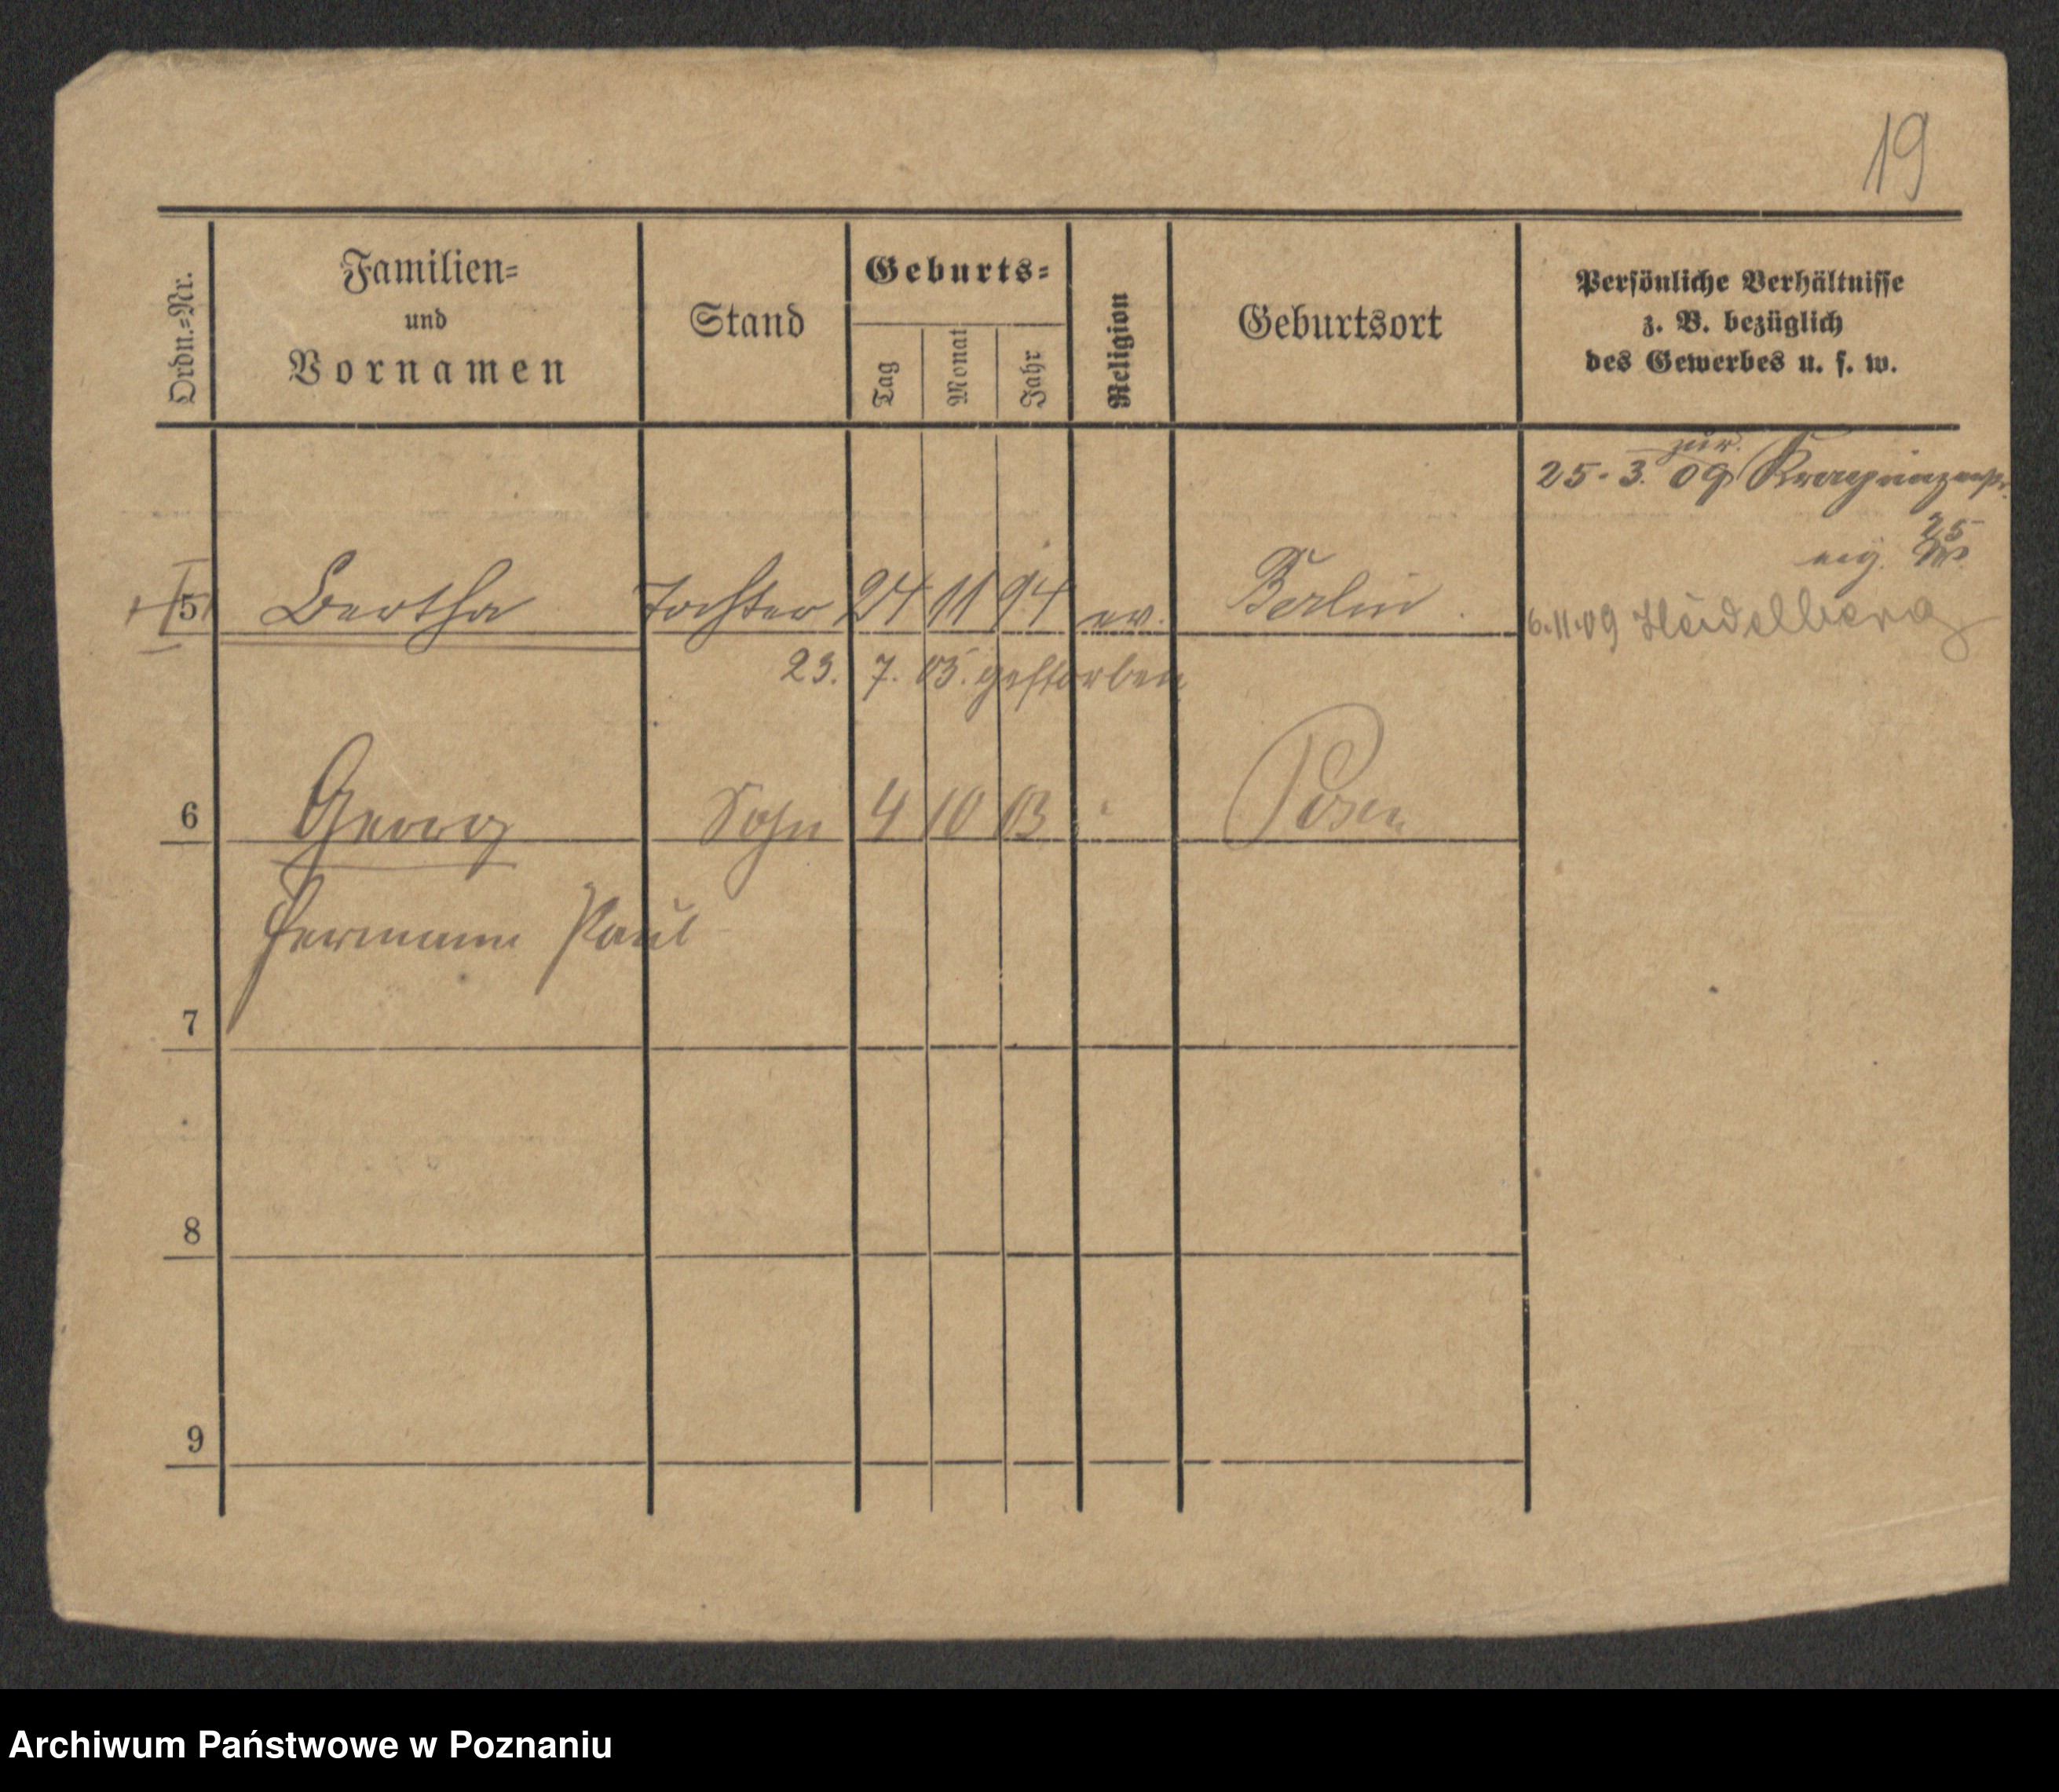 19
Ordn.=Nr.
Familien=
und
Vornamen
Stand
Geburts=
Tag
Monat
Jahr
Religion
Geburtsort
Persönliche Verhältnisse
z. B. bezüglich
des Gewerbes u. s. w.
zur.
25. 3. 09
25
5 Bertha Tochter 24 11 94 ev. Berlin
6.11.09 Heidelberg
23. 7. 05. gestorben
6 Georg Sohn 4 10 03 " Posen
Hermann Paul
7
8
9
Archiwum Państwowe w Poznaniu